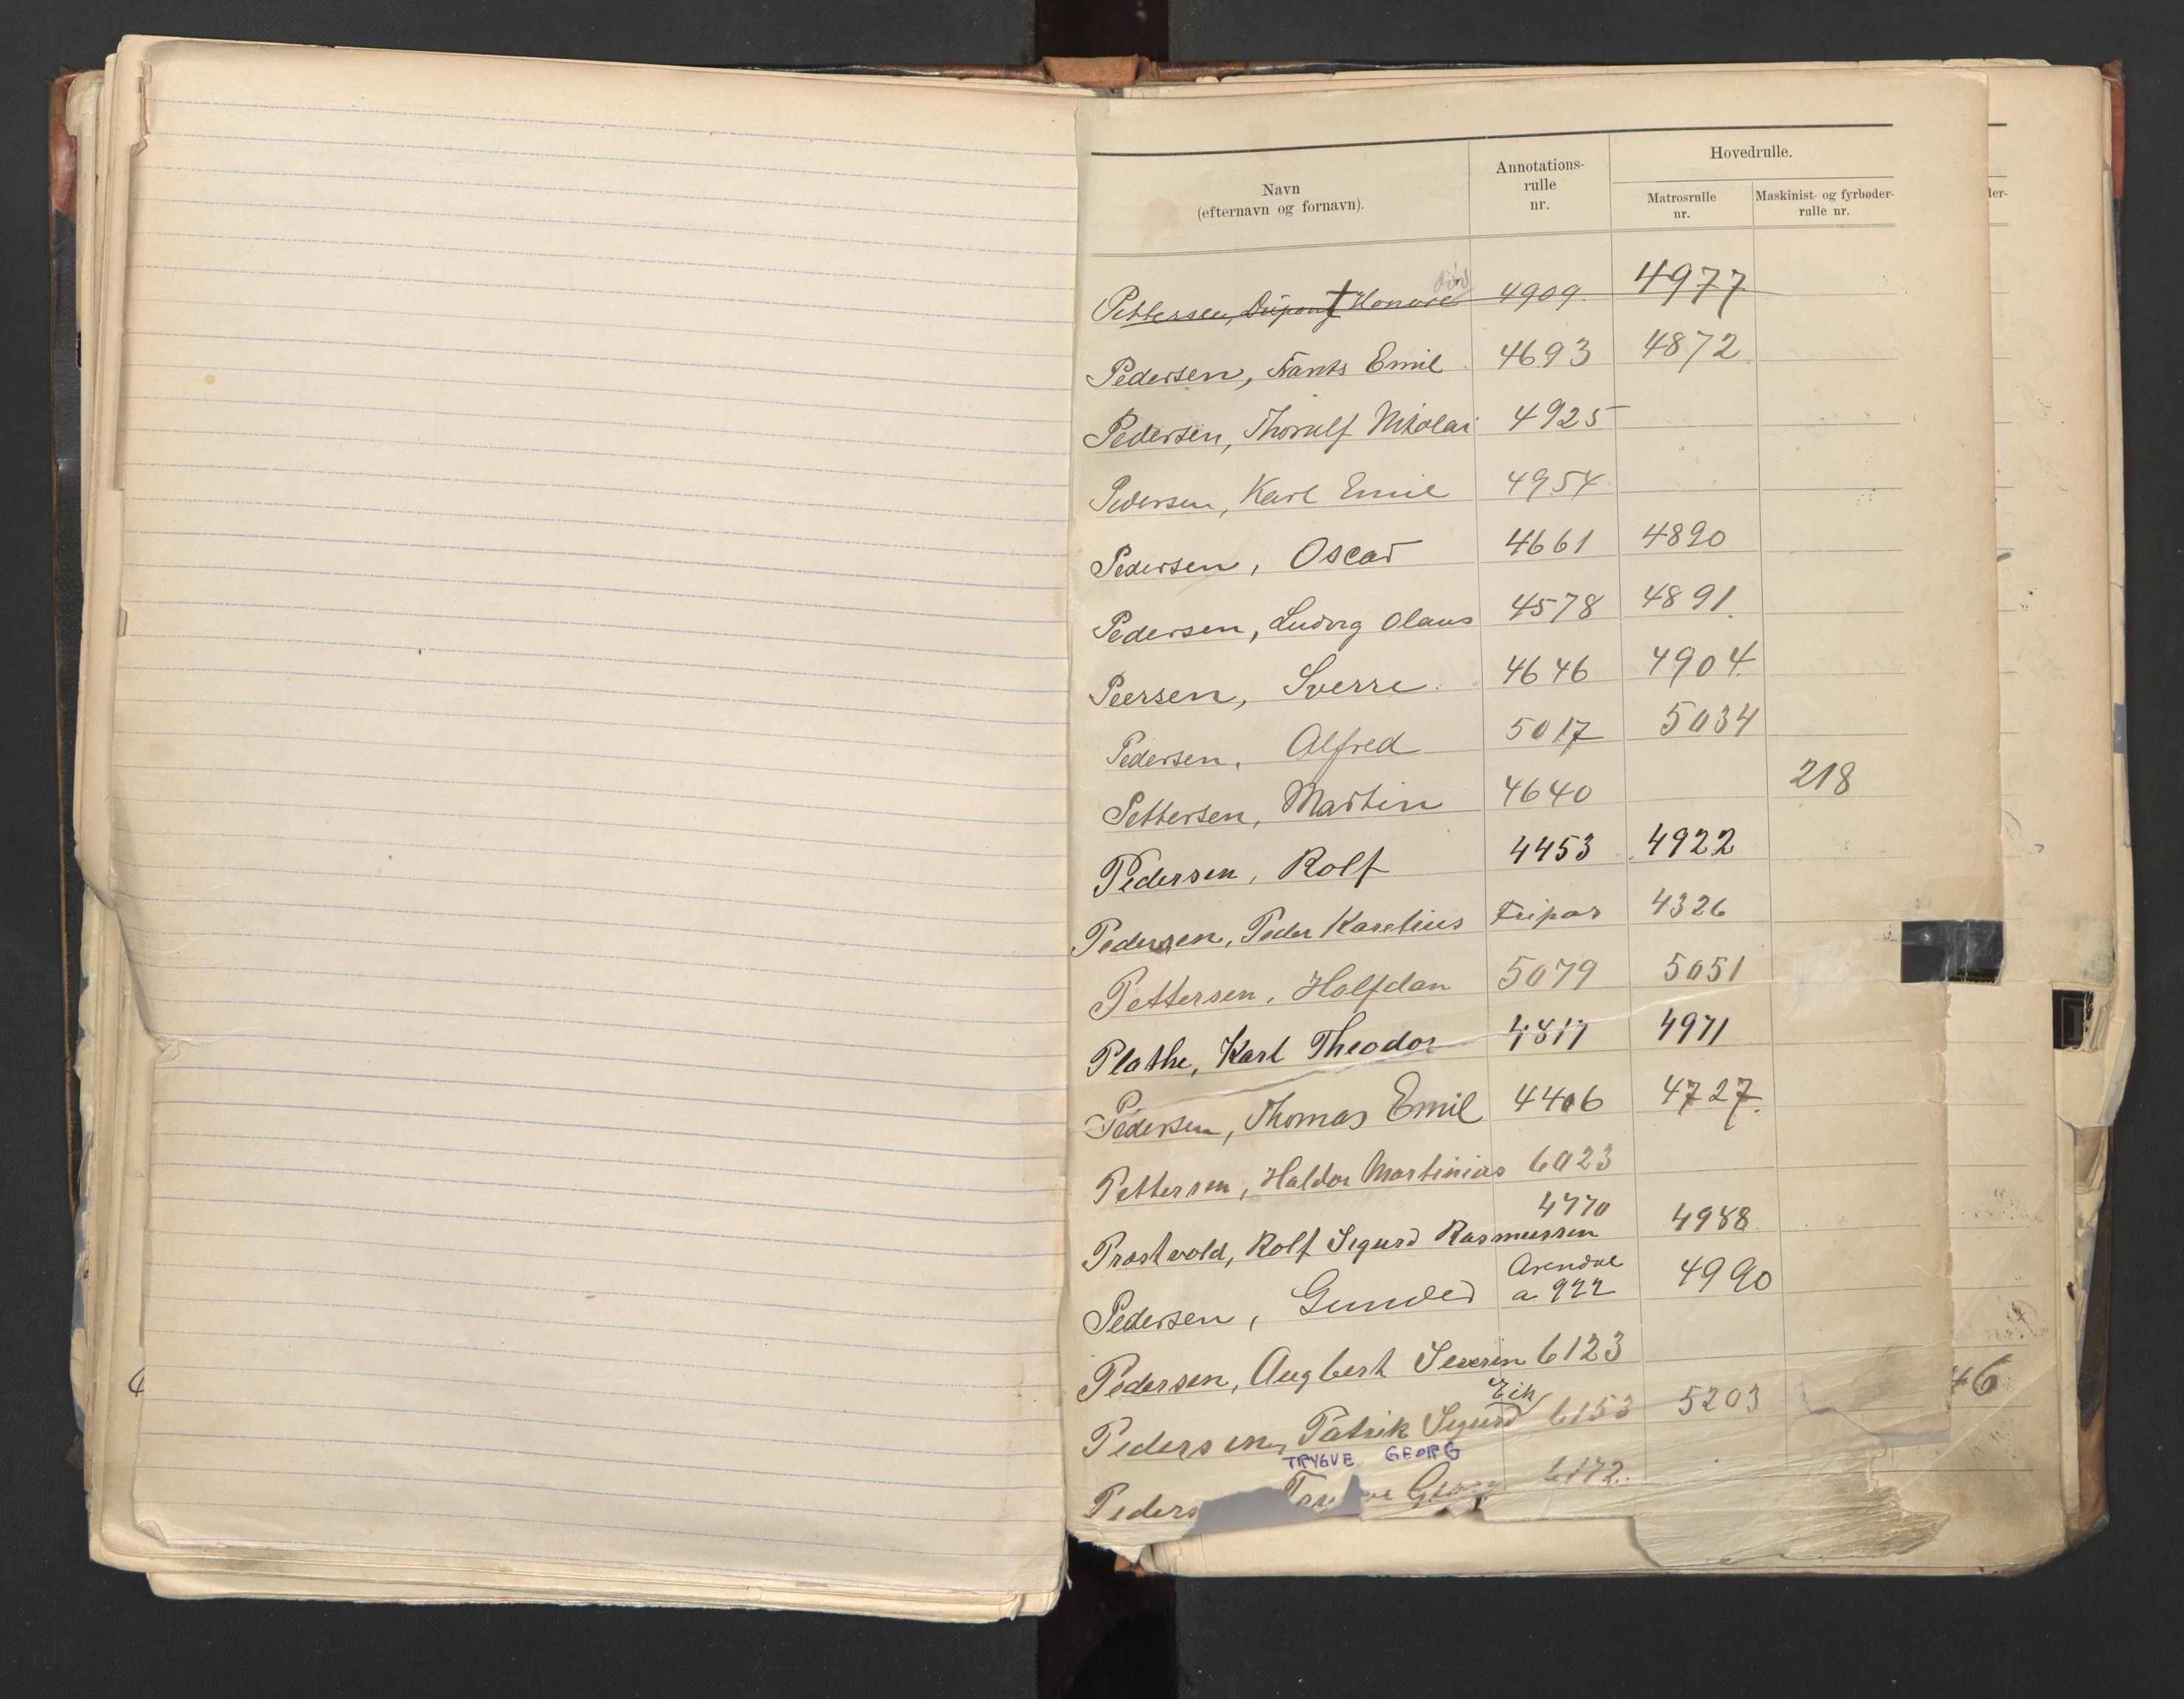 Navn
(efternavn og fornavn).
Annotations-
rulle
nr.
Hovedrulle.
Matrosrulle
nr.
Maskinist- og fyrbøder-
rulle nr.
død
Pettersen, Dupont † Honoré 4909. 4977
Pedersen, Frants Emil 4693 4872
Pedersen, Thorulf Nikolai 4925
Pedersen, Karl Emil 4954
Pedersen, Oscar 4661 4890
Pedersen, Ludvig Olaus 4578 4891
Peersen, Sverre 4646 4904
Pedersen, Alfred 5017 5034
Pettersen, Martin 4640 218
Pedersen, Rolf 4453 4922
Pedersen, Peder Karelius Fripas 4326
Pettersen, Halfdan 5079 5051
Plathe, Karl Theodor 4817 4971
Pedersen, Thomas Emil 4406 4727
Pettersen, Haldor Martinius 6023
Prestvold, Rolf Sigurd Rasmussen 4770 4988
Pedersen, Gunder Arendal a 922 4990
Pedersen, Augbert Severin 6123
Eik
Pedersen, Patrik Sigurd 6153 5203
TRYGVE GEORG
Peders 6172
46
ler-